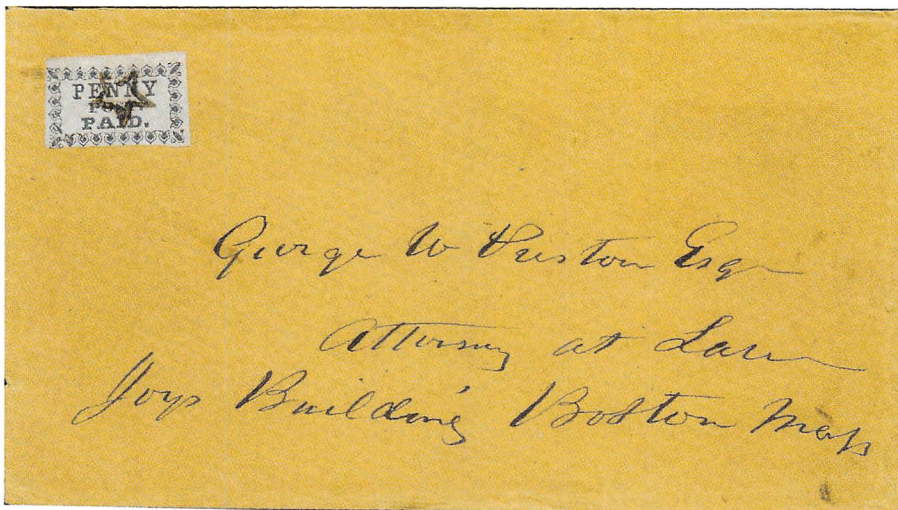 PENNY
POST
PAID.
George W Preston Esqr
Attorney at Law
Joys Building Boston Mass